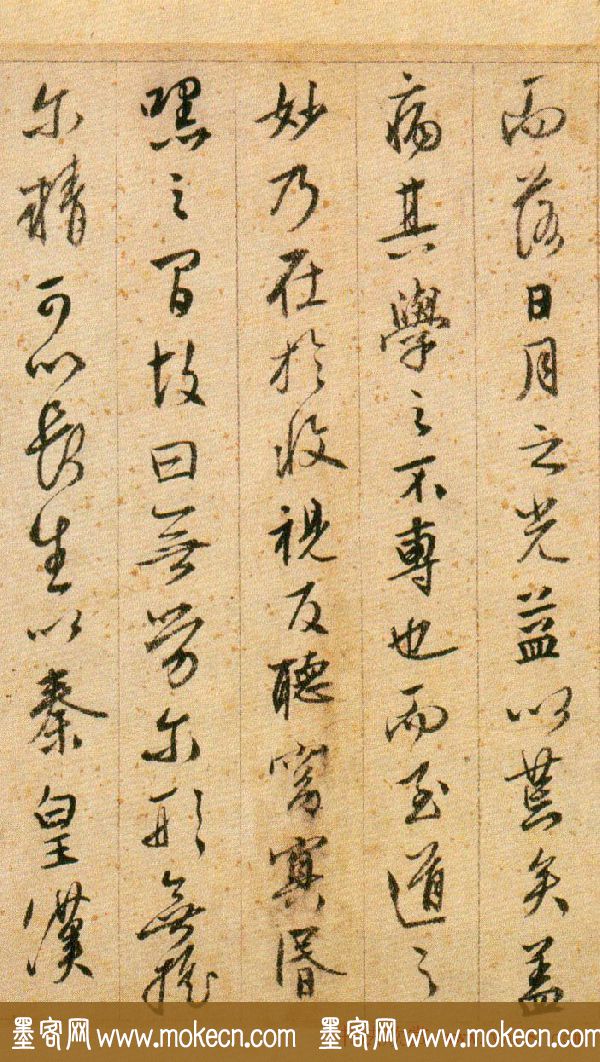 而落日月之光益以荒矣蓋
病其學之不專也而至道之
妙乃在於收視反聽窅冥昏
嘿之間故曰無勞尔形無摇
尔精可以長生以秦皇漢
墨客网 www.mokecn.com 墨客网 www.mokecn.com